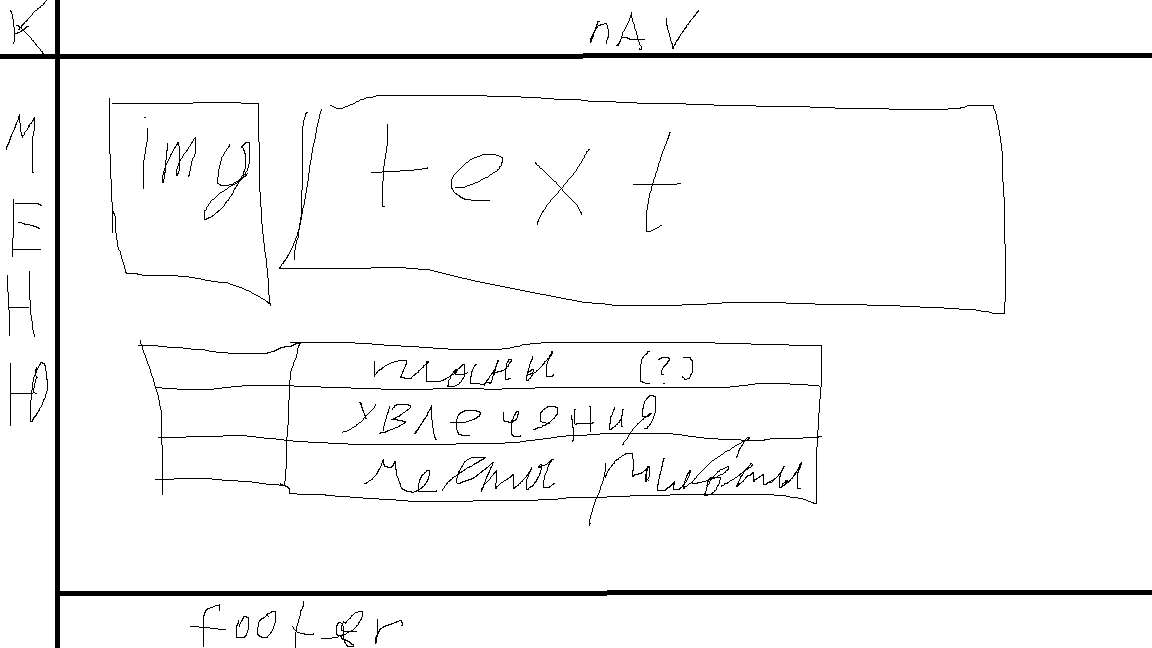 K
nAV
МЕНЮ
img
text
планы (?)
увлечения
место работы
footer